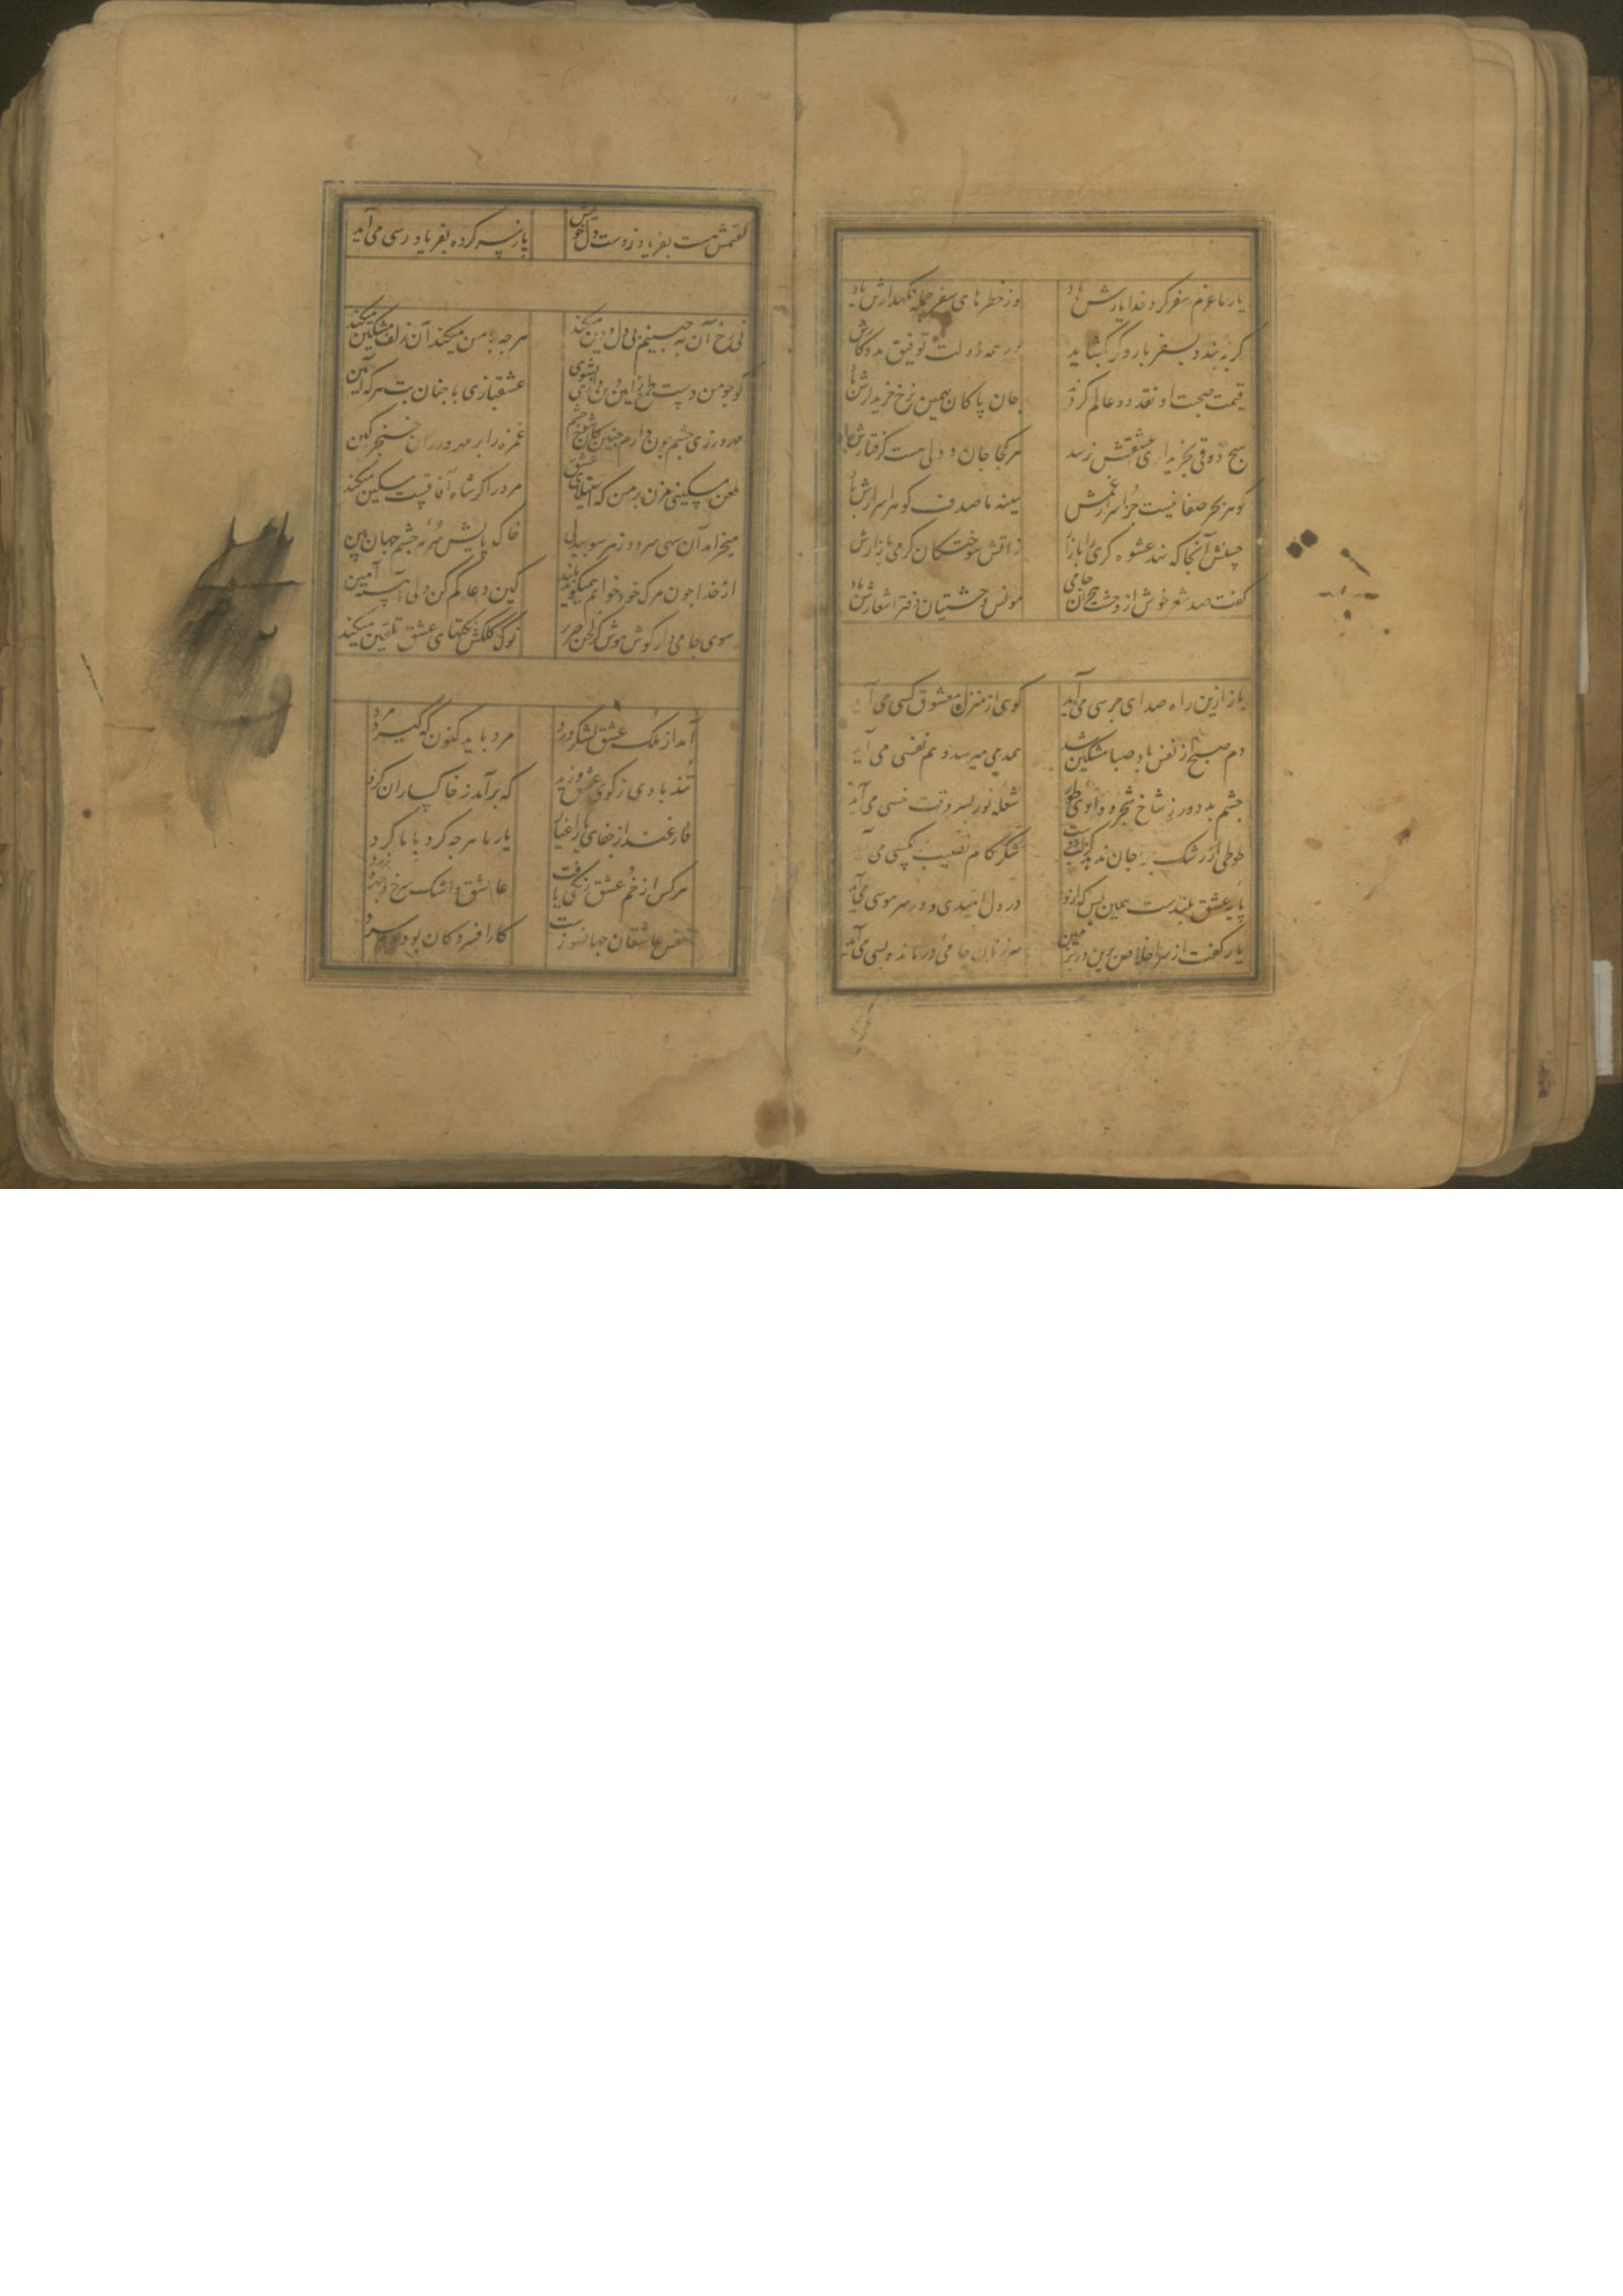 یار ما عزم سفر کرد خدا یارش باد وز خطرهای سفر جمله نگهدارش باد
کر به بندد بسفر بار و کر بکشاید در همه دولت توفیق مددکارش
قیمت صحبت او نقد دو عالم کردند جان پاکان بهمین نرخ خریدارش باد
هیچ ذوقی بخریداری عشقش نرسد هر کجا جان و دلی هست کرفتارش باد
کوهر بحر صفا نیست جز اسرار غمش سینه ما صدف کوهر اسرارش باد
حسنش آنجا که نهد عشوه کری را بازار زآتش سوختکان کرمی بازارش
کفت صد شعر خوش از وحشت هجران جامی مونس وحشتیان دفتر اشعارش باد
باز ازین راه صدای جرسی می آید کوی از منزل معشوق کسی می آید
دم صبح از نفس باد صبا مشکین شد همدمی میرسد و هم نفسی می آید
چشم بد دور ز شاخ شجر وادی طور شعله نور بسر وقت خسی می آید
طوطی از رشک جان ندهد شکر کام نصیب مکسی می آ
پایه عشق بلندست همین بس که ازو در دل امیدی و در سر هوسی می آید
یار کفت از سر اخلاص برین در جامی درمانده بسی می آید
کفتمش هست بفریاد ز دست دل خویش باز پرسید کرده بفریاد رسی می آید
نی رخ آن به جبینم بی دل و دین میکند هرچه با من میکند آن زلف مشکین میکند
کو چو من دست طمع از دین و دل اول بشوی عشقبازی با چنان بت هر که آیین
مهرورزی چشم چون دارم چنین کان شوخ چشم غمزه را بر مهرورزان خنجر کین
طعن مسکینی مزن بر من که استیلای عشق مرد را کر شاه آفاقست مسکین میکند
میخرامد آن سهی سرو و ز هر سو بیدلی خاک پایش سرمه چشم جهان بین
از خدا چون مرک خود خواهم همیکوید بلند کین دعا کم کن ولی آهسته آمین
سوی جامی دار کوش هوش کز لحن صریر نوک کلکش نکتهای عشق تلقین میکند
آمد از ملک عشق لشکر درد مرد باید کنون که کیرد مرد
تند بادی ز کوی عشق وزید که برآمد ز خاکساران کرد
فارغند از جفای ما اغیار یار ما هرچه کرد با ما کرد
هر کس از خم عشق رنکی یافت عاشق و اشک سرخ و چهره زرد
نفس عاشقان جهانسوزست کار افسردکان بود دم سرد